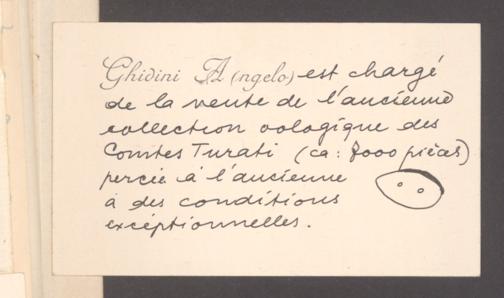 Ghidini A(ngelo) est chargé
de la vente de l'ancienne
collection oologique des
Comtes Turati (ca: 8000 pièces)
percée à l'ancienne
à des conditions
exceptionnelles.